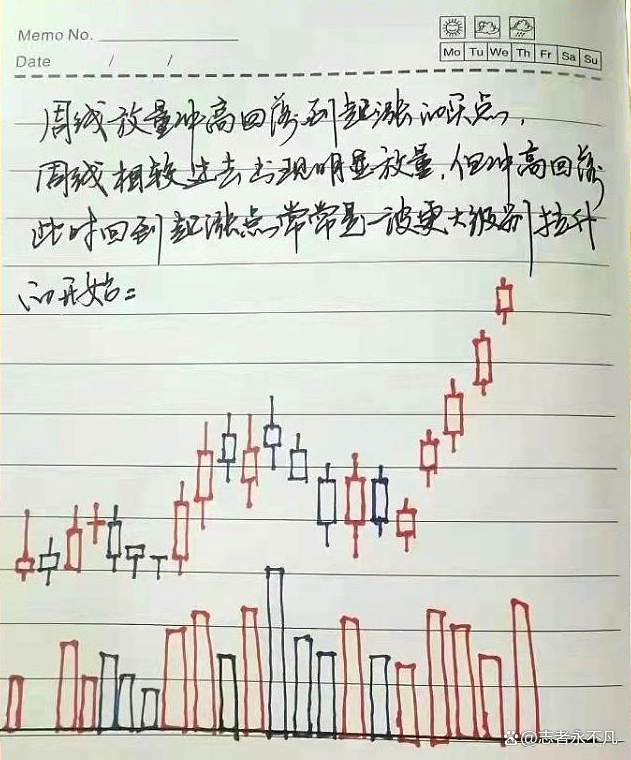 Memo No.
Date / /
Mo Tu We Th Fr Sa Su
周线放量冲高回落到起涨的买点,
周线相较过去出现明显放量,但冲高回落
此时回到起涨点常常是一波更大级别拉升
的开始:
@志者永不凡